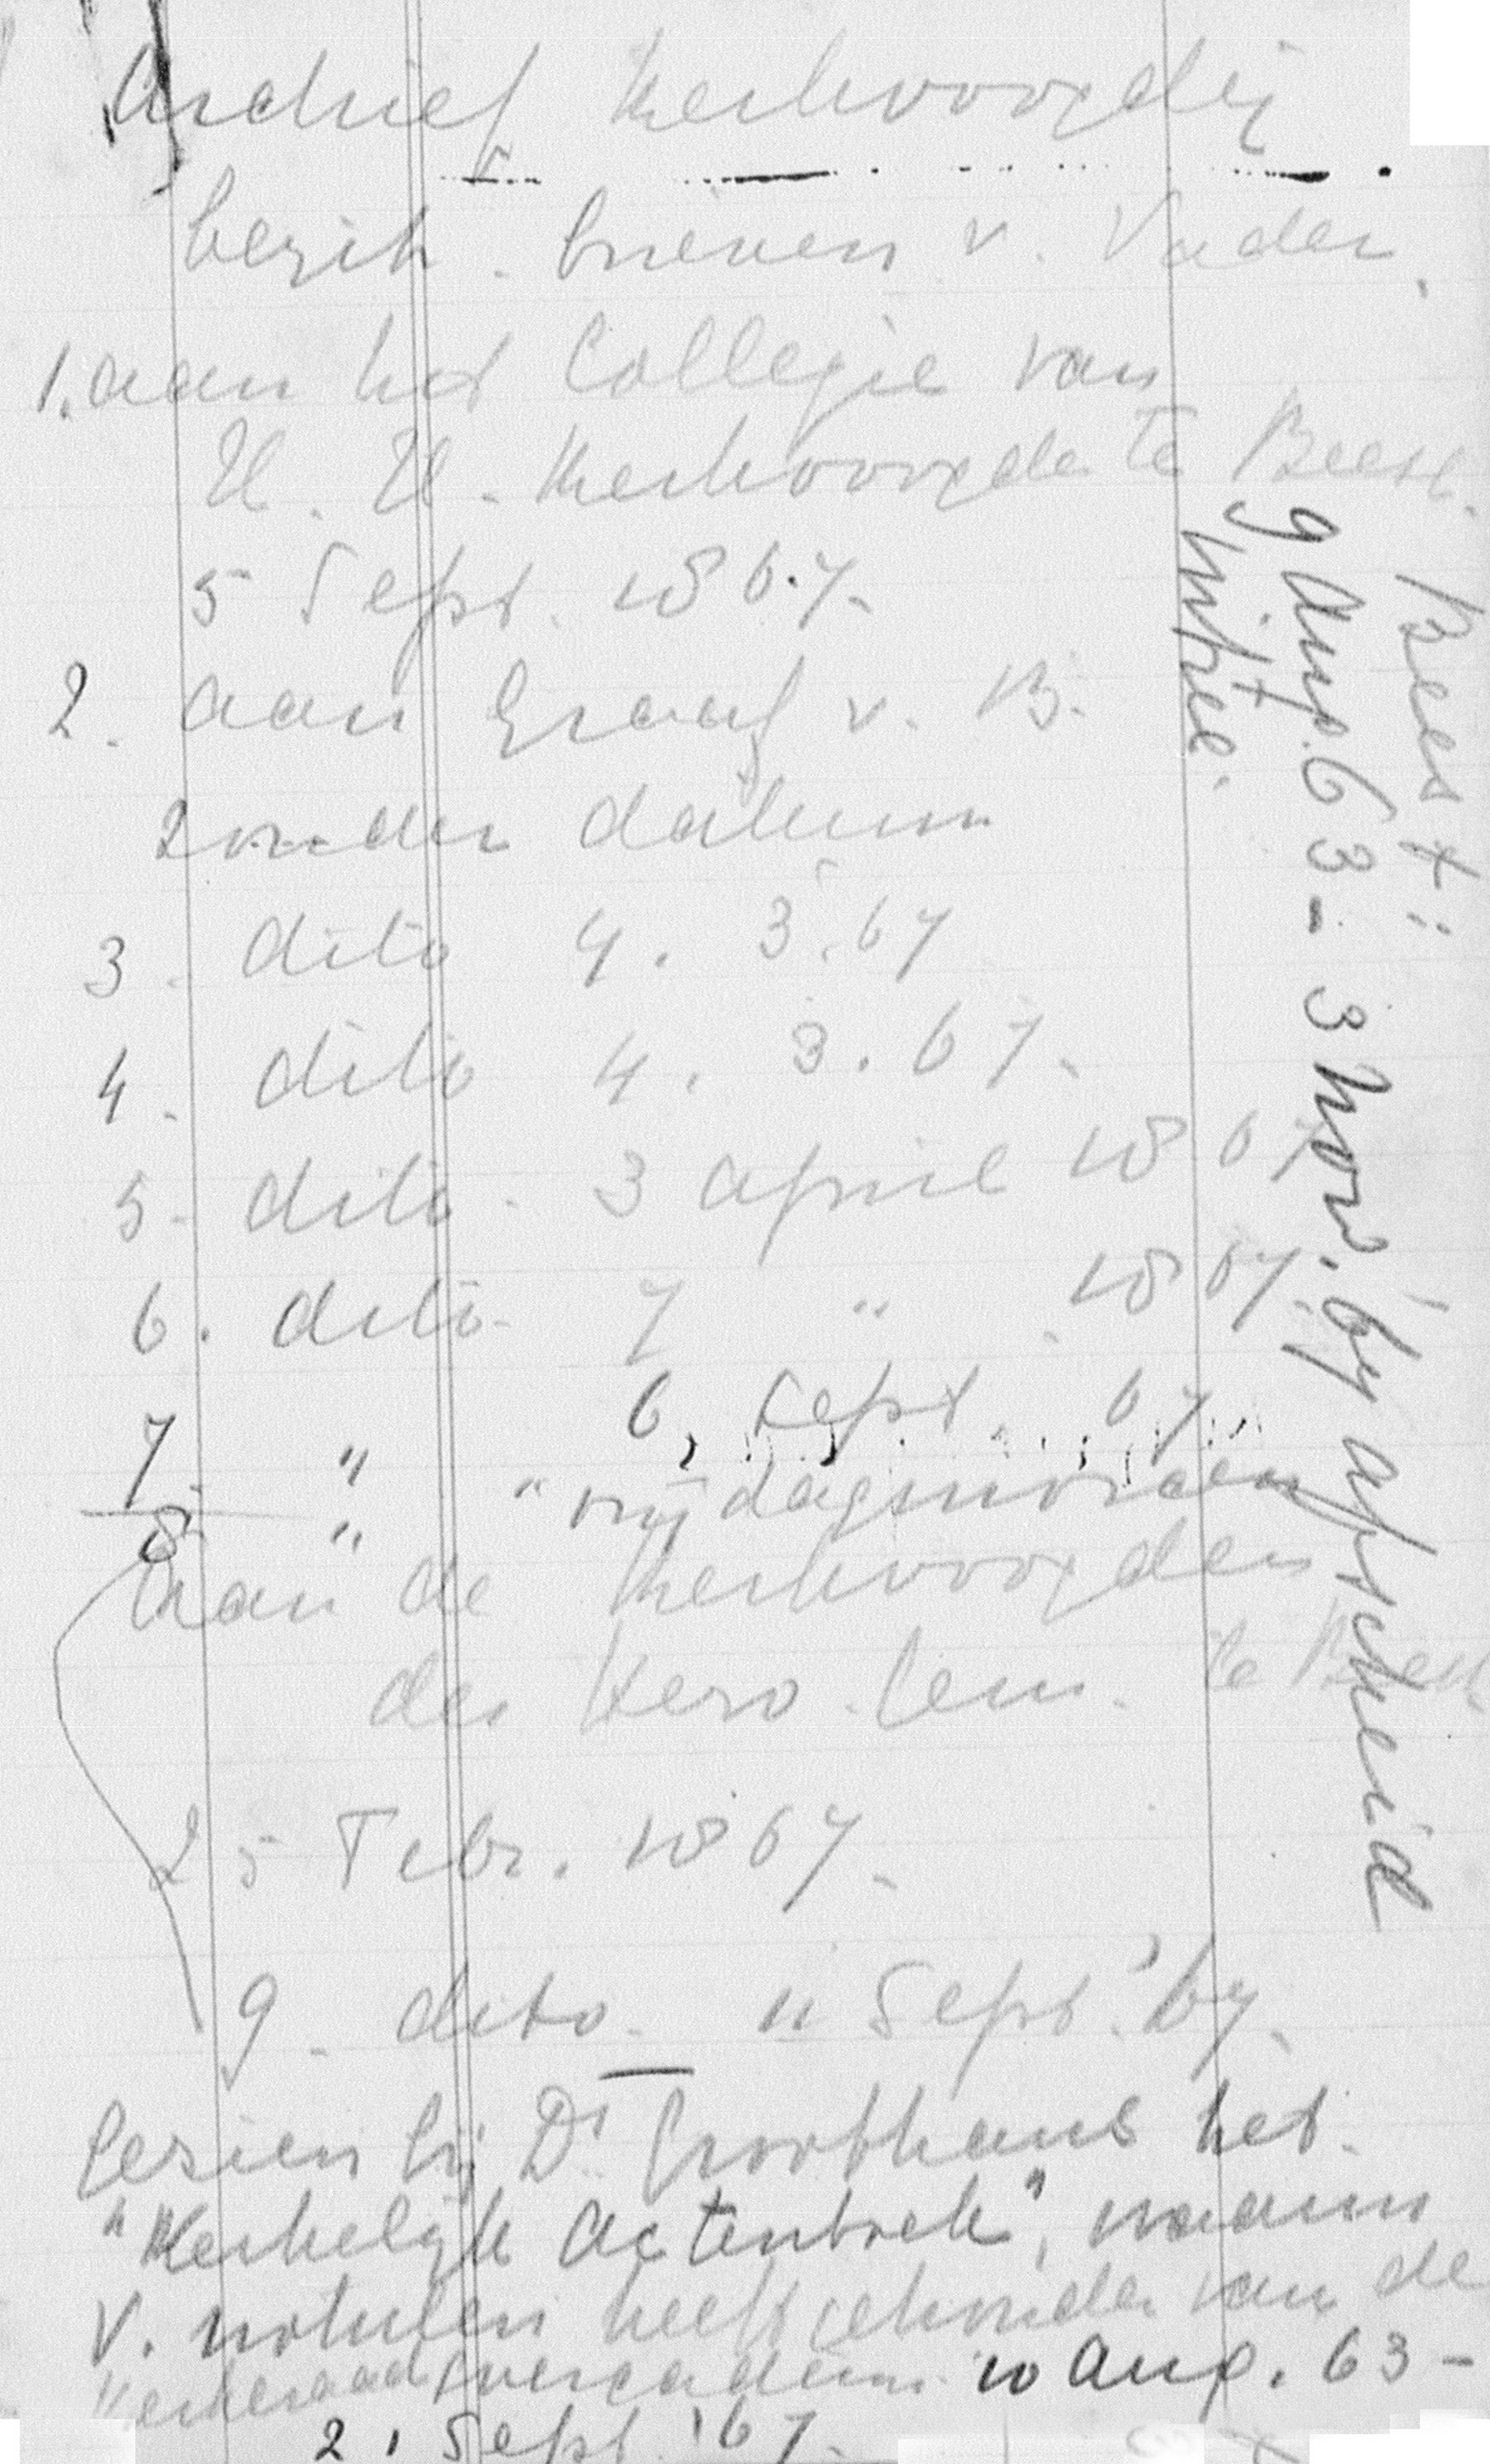 Archief Kerkvoogdij
bezit. brieven v. Vader.
1. aan het Collegie van
H. H. Kerkvoogden te Beest.
5 Sept. 1867.
2. aan Graaf v. B.
zonder datum
3. dito 4. 3. 67
4. dito 4. 3. 67.
5. dito. 3 april 1867
6. dito. 7 " 1867.
7. " 6 Sept. 67
8 " " vrijdagmorgen
aan de Kerkvoogden
der Herv. Gem. te Beest
25 Febr. 1867.
9. dito. 11 Sept. '67.
Gezien bij Ds Groothans het
"Kerkelijk Actenboek", waarin
V. notulen heeft gehouden van de
Kerkeraadsvergaderin. 10 Aug. 63 -
2. Sept. '67.
Beest:
9 Aug. 63 - 3 Nov. '67 afscheid
intree.